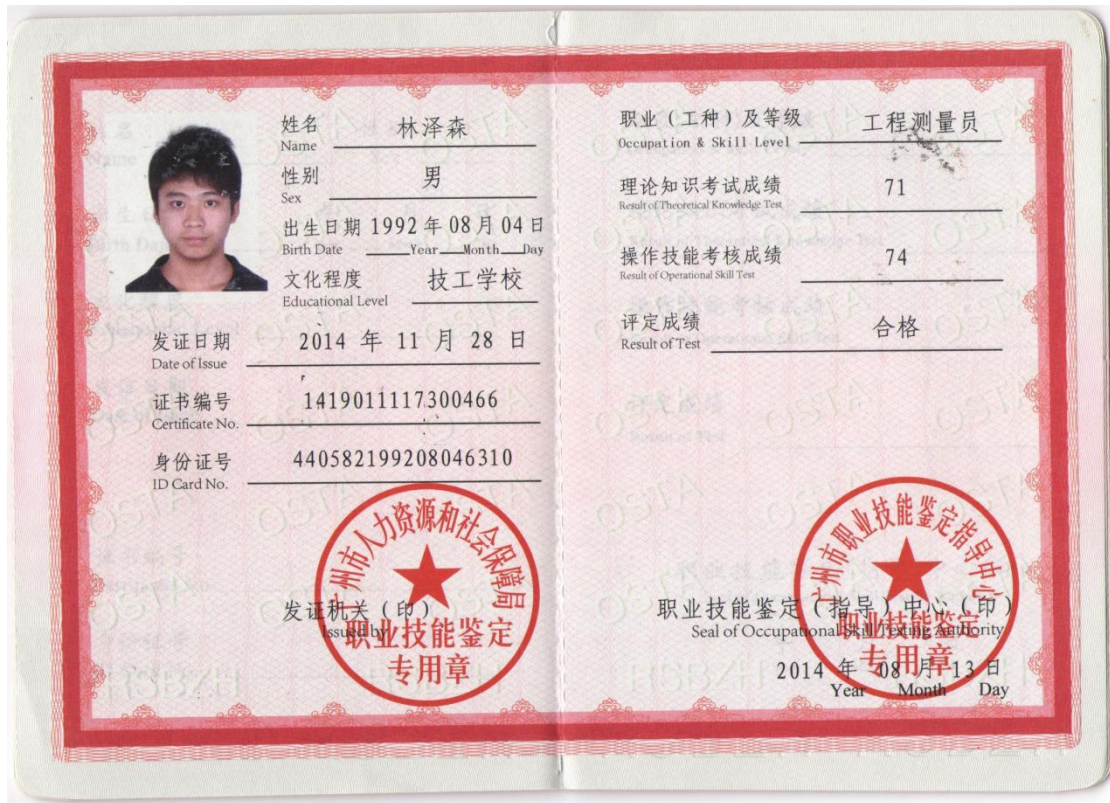 姓名 林泽森
Name
性别 男
Sex
出生日期 1992 年 08 月 04 日
Birth Date Year Month Day
文化程度 技工学校
Educational Level
发证日期 2014 年 11 月 28 日
Date of Issue
证书编号 1419011117300466
Certificate No.
身份证号 440582199208046310
ID Card No.
广州市人力资源和社会保障局
发证机关（印）
Issued by
职业技能鉴定
专用章
职业（工种）及等级 工程测量员
Occupation & Skill Level
理论知识考试成绩 71
Result of Theoretical Knowledge Test
操作技能考核成绩 74
Result of Operational Skill Test
评定成绩 合格
Result of Test
广州市职业技能鉴定指导中心
职业技能鉴定（指导）中心（印）
Seal of Occupational Skill Testing Authority
职业技能鉴定
专用章
2014 年 08 月 13 日
Year Month Day